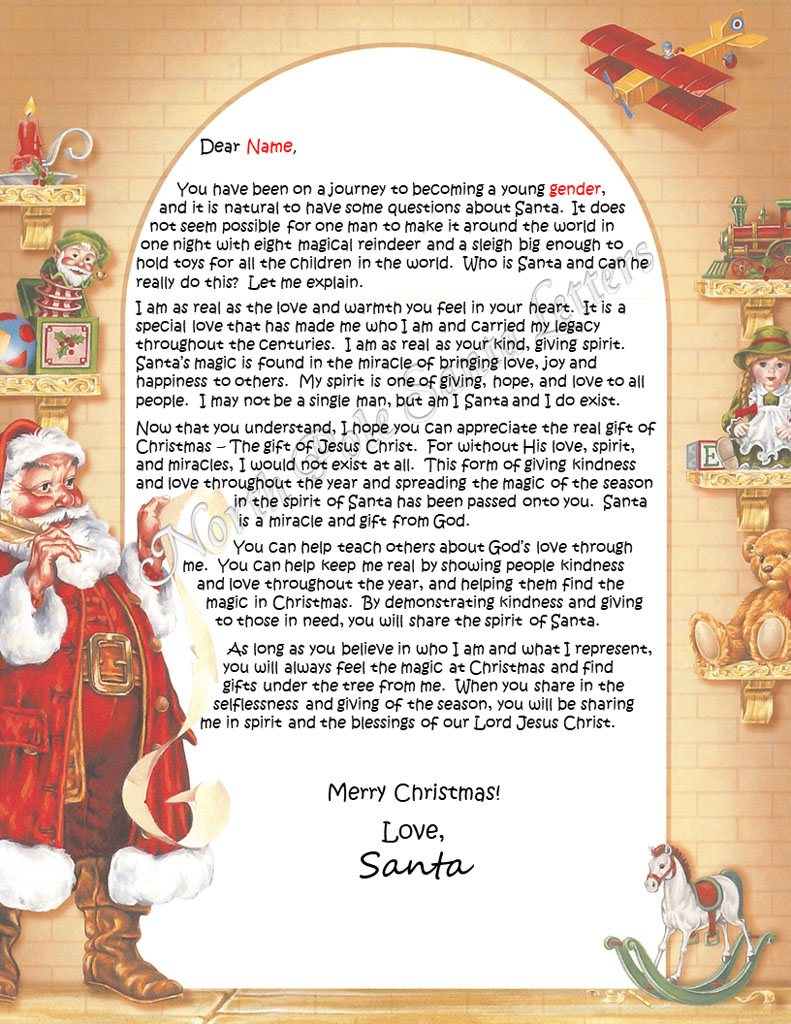 Dear Name,
You have been on a journey to becoming a young gender,
and it is natural to have some questions about Santa. It does
not seem possible for one man to make it around the world in
one night with eight magical reindeer and a sleigh big enough to
hold toys for all the children in the world. Who is Santa and can he
really do this? Let me explain.
I am as real as the love and warmth you feel in your heart. It is a
special love that has made me who I am and carried my legacy
throughout the centuries. I am as real as your kind, giving spirit.
Santa's magic is found in the miracle of bringing love, joy and
happiness to others. My spirit is one of giving, hope, and love to all
people. I may not be a single man, but am I Santa and I do exist.
Now that you understand, I hope you can appreciate the real gift of
Christmas – The gift of Jesus Christ. For without His love, spirit,
and miracles, I would not exist at all. This form of giving kindness
and love throughout the year and spreading the magic of the season
in the spirit of Santa has been passed onto you. Santa
is a miracle and gift from God.
You can help teach others about God's love through
me. You can help keep me real by showing people kindness
and love throughout the year, and helping them find the
magic in Christmas. By demonstrating kindness and giving
to those in need, you will share the spirit of Santa.
As long as you believe in who I am and what I represent,
you will always feel the magic at Christmas and find
gifts under the tree from me. When you share in the
selflessness and giving of the season, you will be sharing
me in spirit and the blessings of our Lord Jesus Christ.
Merry Christmas!
Love,
Santa
North Pole Santa Letters
E